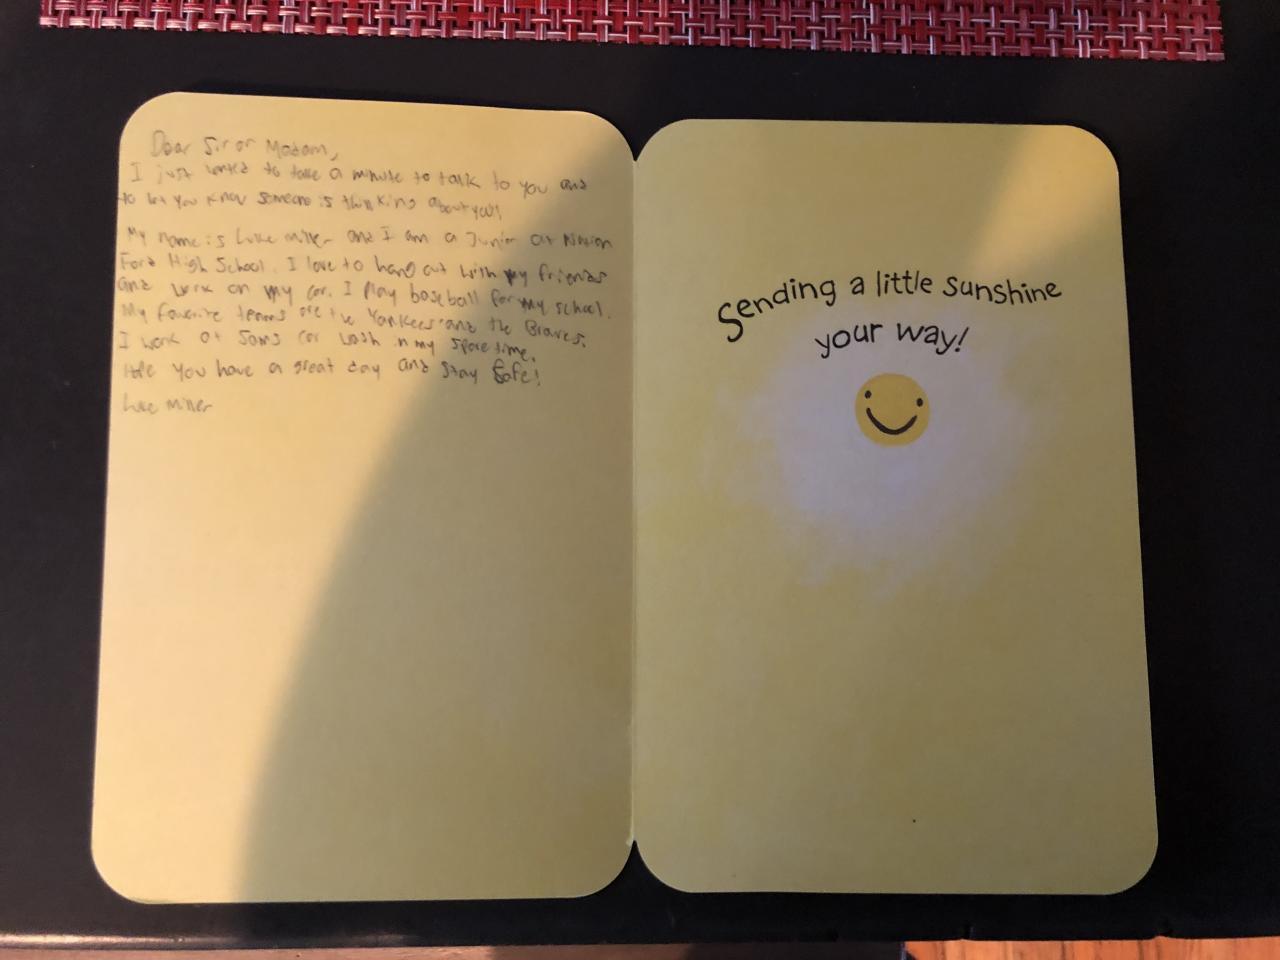 Dear Sir or Madam,
I just wanted to take a minute to talk to you and
to let you know someone is thinking about you!
My name is Luke Miller and I am a Junior at Nation
Ford High School. I love to hang out with my friends
and work on my car. I play baseball for my school.
My favorite teams are the Yankees and the Braves.
I work at Sams car wash in my spare time.
Hope you have a great day and stay safe!
Luke Miller
Sending a little sunshine
your way!